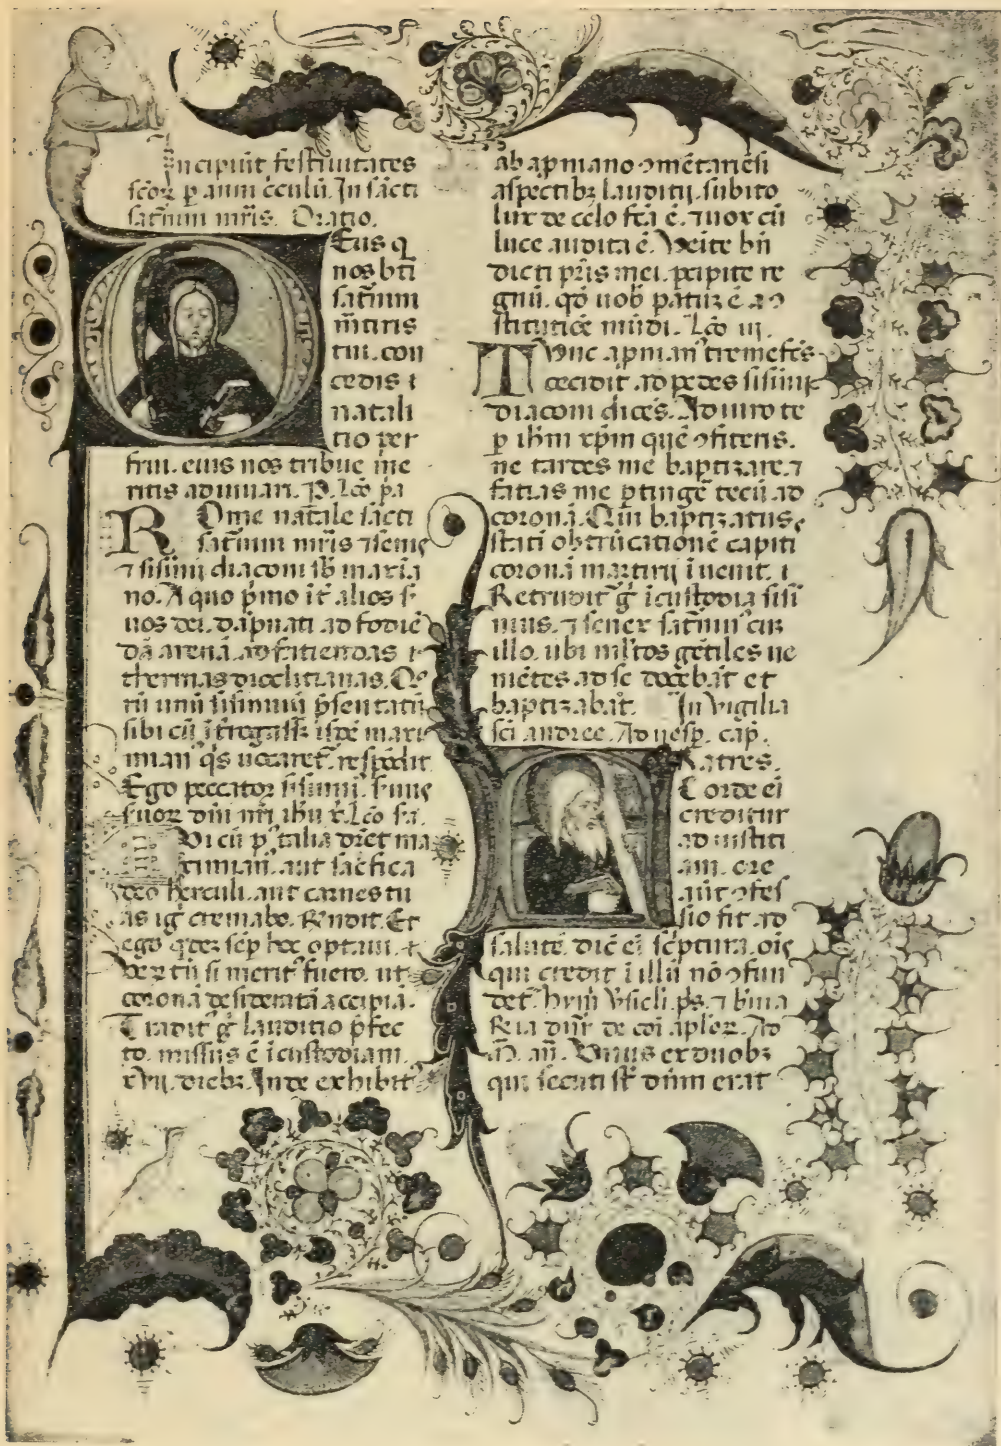 Incipiũt festiuitates
scõꝝ ꝑ anni cĩculũ. In sãcti
saťnini mr̃is. Oratio.
Eus q
nos bti
saťnini
mr̃tiris
tui. con
cedis i
natali
tio per
frui. eius nos tribue me
ritis adiuuari. P. Lc̃o p̃a
Rome natale sãcti
saťnini mr̃is ⁊ senis
⁊ sisinij diaconi sb maxia
no. A quo p̃mo iť alios s̃
uos dei. dãpnati ad fodiẽ
dã arenã. ad fatiendas
thermas dioclitianas.
sibi cũ ĩtrogass
mian qs uocaret. respõdit
Ego peccator sisinni. suus
suoꝝ dñi nr̃i ihũ x. Lc̃o sa.
Vi cũ p talia dicet ma
ximian. aut sac̃fica
deo herculi. aut carnes tu
as ig cremabo. Rñdit. Et
ego q̃dez sẽp hoc optaui. ⁊
uere tũ si meriť fuero. ut
coronã desideratã accipiã.
Tradit g̃ lauditio p̃fec
to. missus ẽ ĩ custodiam.
xvij. diebꝫ. Inde exhibit
ab apiniano ɔmẽtariẽsi
aspectibꝫ lauditij. subito
lux de celo fc̃a ẽ. ⁊ uox cũ
luce audita ẽ. Veite bñ
dicti pr̃is mei. p̃cipite re
gnũ. qđ uob p̃atuꝫ ẽ a ɔ
stitutiõe mũdi. Lc̃o iij.
Tunc apiniañ tremefc̃s
cecidit ad pedes sisinij
diaconi dicẽs. Adiuro te
ꝑ ihm xp̃m quẽ ɔfiteris.
ne tardes me baptizare. ⁊
fatias me p̃tingẽ tecũ ad
coronã. Qui baptizatus
stati obtrũcationẽ capiti
coronã martirij ĩuenit.
Retrudit g̃ ĩ custodia sisi
nius. ⁊ senex saťnin cũ
illo. ubi ml̃tos gẽtiles ue
niẽtes ad se docebãt et
baptizabãt. In vigilia
sc̃i andree. Ad uesp̃. cap̃.
Ratres.
Corde ei
creditur
ad iustiti
am. ore
aut̃ ɔfes
sio fit ad
salutẽ. dic̃ ei sc̃ptura. ois
qui credit ĩ illũ nõ ɔfun
det. hym̃ v̾sicli. ps. ⁊ bñia
feria dñr de coĩ aplõꝝ. Ad
m̃. añ. Vnus ex duobꝫ
qui secuti st̃ dñm erat